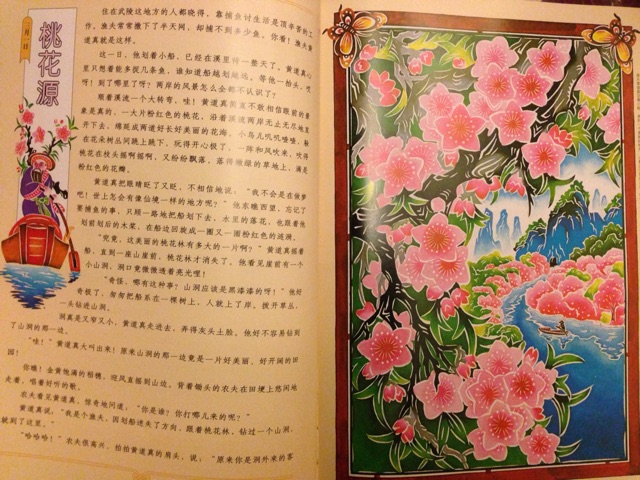 桃花源
月
日
住在武陵这地方的人都晓得，靠捕鱼讨生活是顶辛苦的工
作。渔夫常常撒下了半天网，却捕不到多少鱼。你看！渔夫黄
道真就是这样。
这一日，他划着小船，已经在溪里待一整天了。黄道真心
里只想着能多捉几条鱼，谁知道船越划越远。等他一抬头，哎
呀！到了哪里了呀？两岸的风景怎么全都不认识了？
顺着溪流一个大转弯，哇！黄道真简直不敢相信眼前的景
象是真的，一大片粉红色的桃花，沿着溪流两岸无止无尽地直
开下去，绵延成两道好长好美丽的花海。小鸟儿叽叽喳喳，躲
在花朵树丛间跳上跳下，玩得开心极了。一阵和风吹来，吹得
桃花在枝头摇啊摇啊，又纷纷飘落，落得嫩绿的草地上，满是
粉红色的花瓣。
黄道真把眼睛眨了又眨，不相信地说：“我不会是在做梦
吧！世上怎会有像仙境一样的地方呢？”他东瞧西望，忘记了
要捕鱼的事，只顾一路地把船划下去，水里的落花，也跟着他
划前划后的木桨，在船边回旋成一圈又一圈粉红色的涟漪。
“究竟，这美丽的桃花林有多大的一片啊？”黄道真摇着
船，直到一座山崖前，桃花林才消失了。他看见崖前有一个
小山洞，洞口竟微微透着亮光哩！
“奇怪，哪有这种事？山洞应该是黑漆漆的呀！”他好
奇极了，匆匆把船系在一棵树上，人就上了岸。拨开草丛，
一头钻进山洞。
洞真是又窄又小，黄道真夫进去，弄得灰头土脸。他好不容易钻到
了山洞的那一边。
“哇！”黄道真大叫出来！原来山洞的那一边竟是一片好美丽、好开阔的田
园！
你瞧！金黄饱满的稻穗，迎风直摇到山边。背着锄头的农夫在田埂上悠闲地
走着，唱着好听的歌。
农夫看见黄道真，惊奇地问道：“你是谁？你打哪儿来的呢？”
黄道真说：“我是个渔夫，因划船迷失了方向，跟着桃花林，钻过一个山洞，
就到了这里。”
“哈哈哈！”农夫很高兴，拍拍黄道真的肩头，说：“原来你是洞外来的客